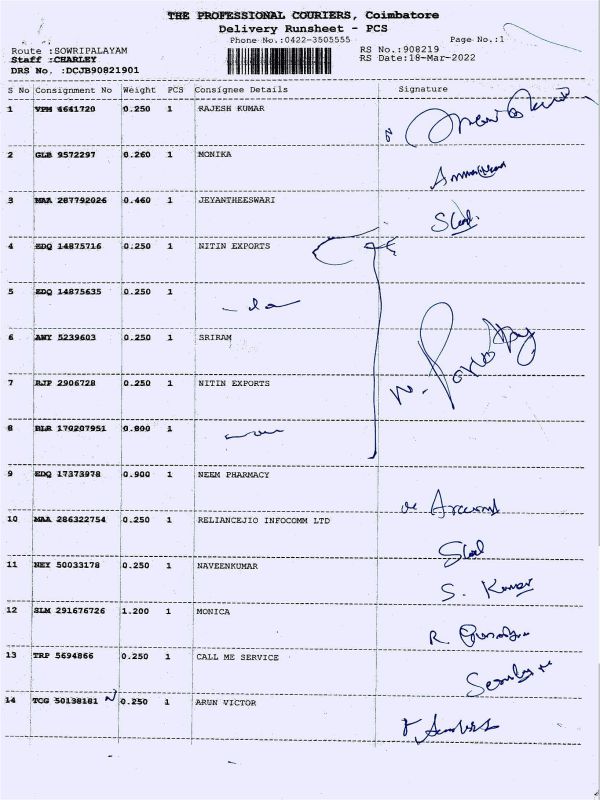 THE PROFESSIONAL COURIERS, Coimbatore
Delivery Runsheet - PCS
Phone No.:0422-3505555 Page No.:1
Route :SOWRIPALAYAM RS No.:908219
Staff :CHARLEY RS Date:18-Mar-2022
DRS No. :DCJB90821901
S No Consignment No Weight PCS Consignee Details Signature
1 VPM 4641720 0.250 1 RAJESH KUMAR
2 GLB 9572297 0.260 1 MONIKA
3 MAA 287792026 0.460 1 JEYANTHEESWARI
4 EDQ 14875716 0.250 1 NITIN EXPORTS
5 EDQ 14875635 0.250 1
6 AWY 5239603 0.250 1 SRIRAM
7 RJP 2906728 0.250 1 NITIN EXPORTS
8 BLR 170207951 0.800 1
9 EDQ 17373978 0.900 1 NEEM PHARMACY
10 MAA 286322754 0.250 1 RELIANCEJIO INFOCOMM LTD
11 NEY 50033178 0.250 1 NAVEENKUMAR
S. Kumar
12 SLM 291676726 1.200 1 MONICA
13 TRP 5694866 0.250 1 CALL ME SERVICE
14 TCG 50138181 0.250 1 ARUN VICTOR